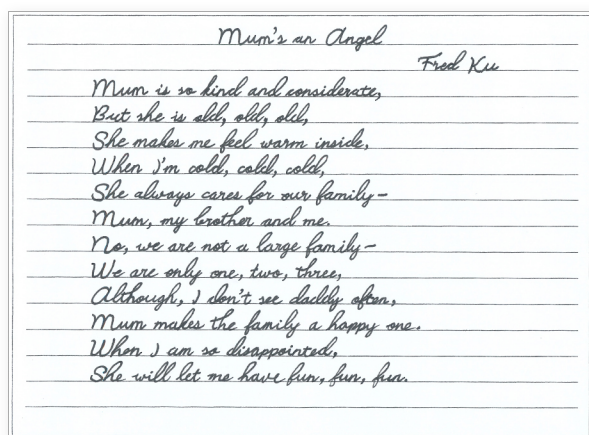 Mum's an Angel
Fred Ku
Mum is so kind and considerate,
But she is old, old, old,
She makes me feel warm inside,
When I'm cold, cold, cold,
She always cares for our family-
Mum, my brother and me.
No, we are not a large family-
We are only one, two, three,
Although, I don't see daddy often,
Mum makes the family a happy one.
When I am so disappointed,
She will let me have fun, fun, fun.